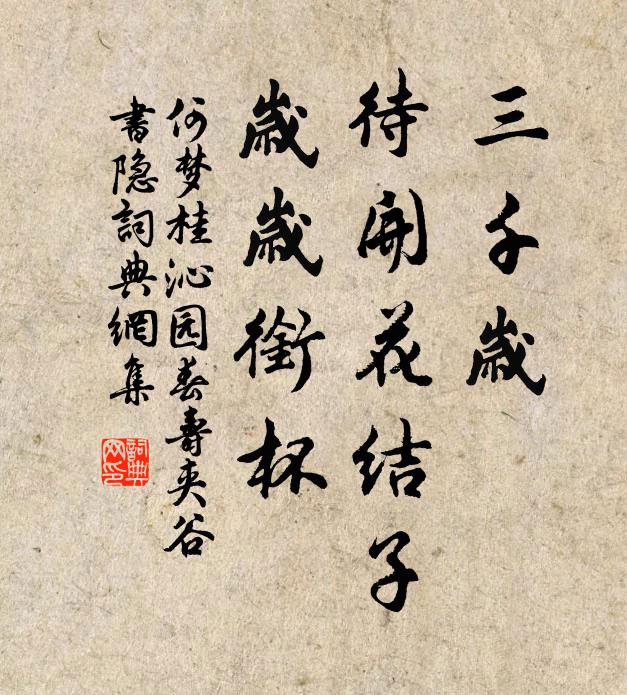 三千歲
待開花結子
歲歲銜杯
何梦桂沁园春壽夹谷
書隐詞典網集
詞典网印